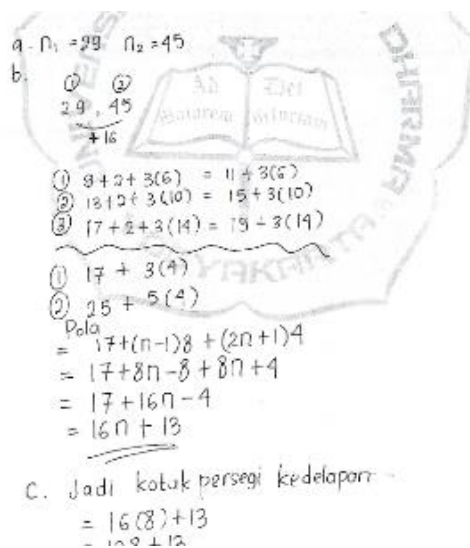 a. n₁ = 29 n₂ = 45
b.
① ②
29 , 45
+16
① 9+2+3(6) = 11+3(6)
② 13+2+3(10) = 15+3(10)
③ 17+2+3(14) = 19+3(14)
① 17 + 3(4)
② 25 + 5(4)
Pola
= 17+(n-1)8 + (2n+1)4
= 17+8n-8+8n+4
= 17+16n-4
= 16n+13
C. Jadi kotak persegi kedelapan
= 16(8)+13
= 128+13